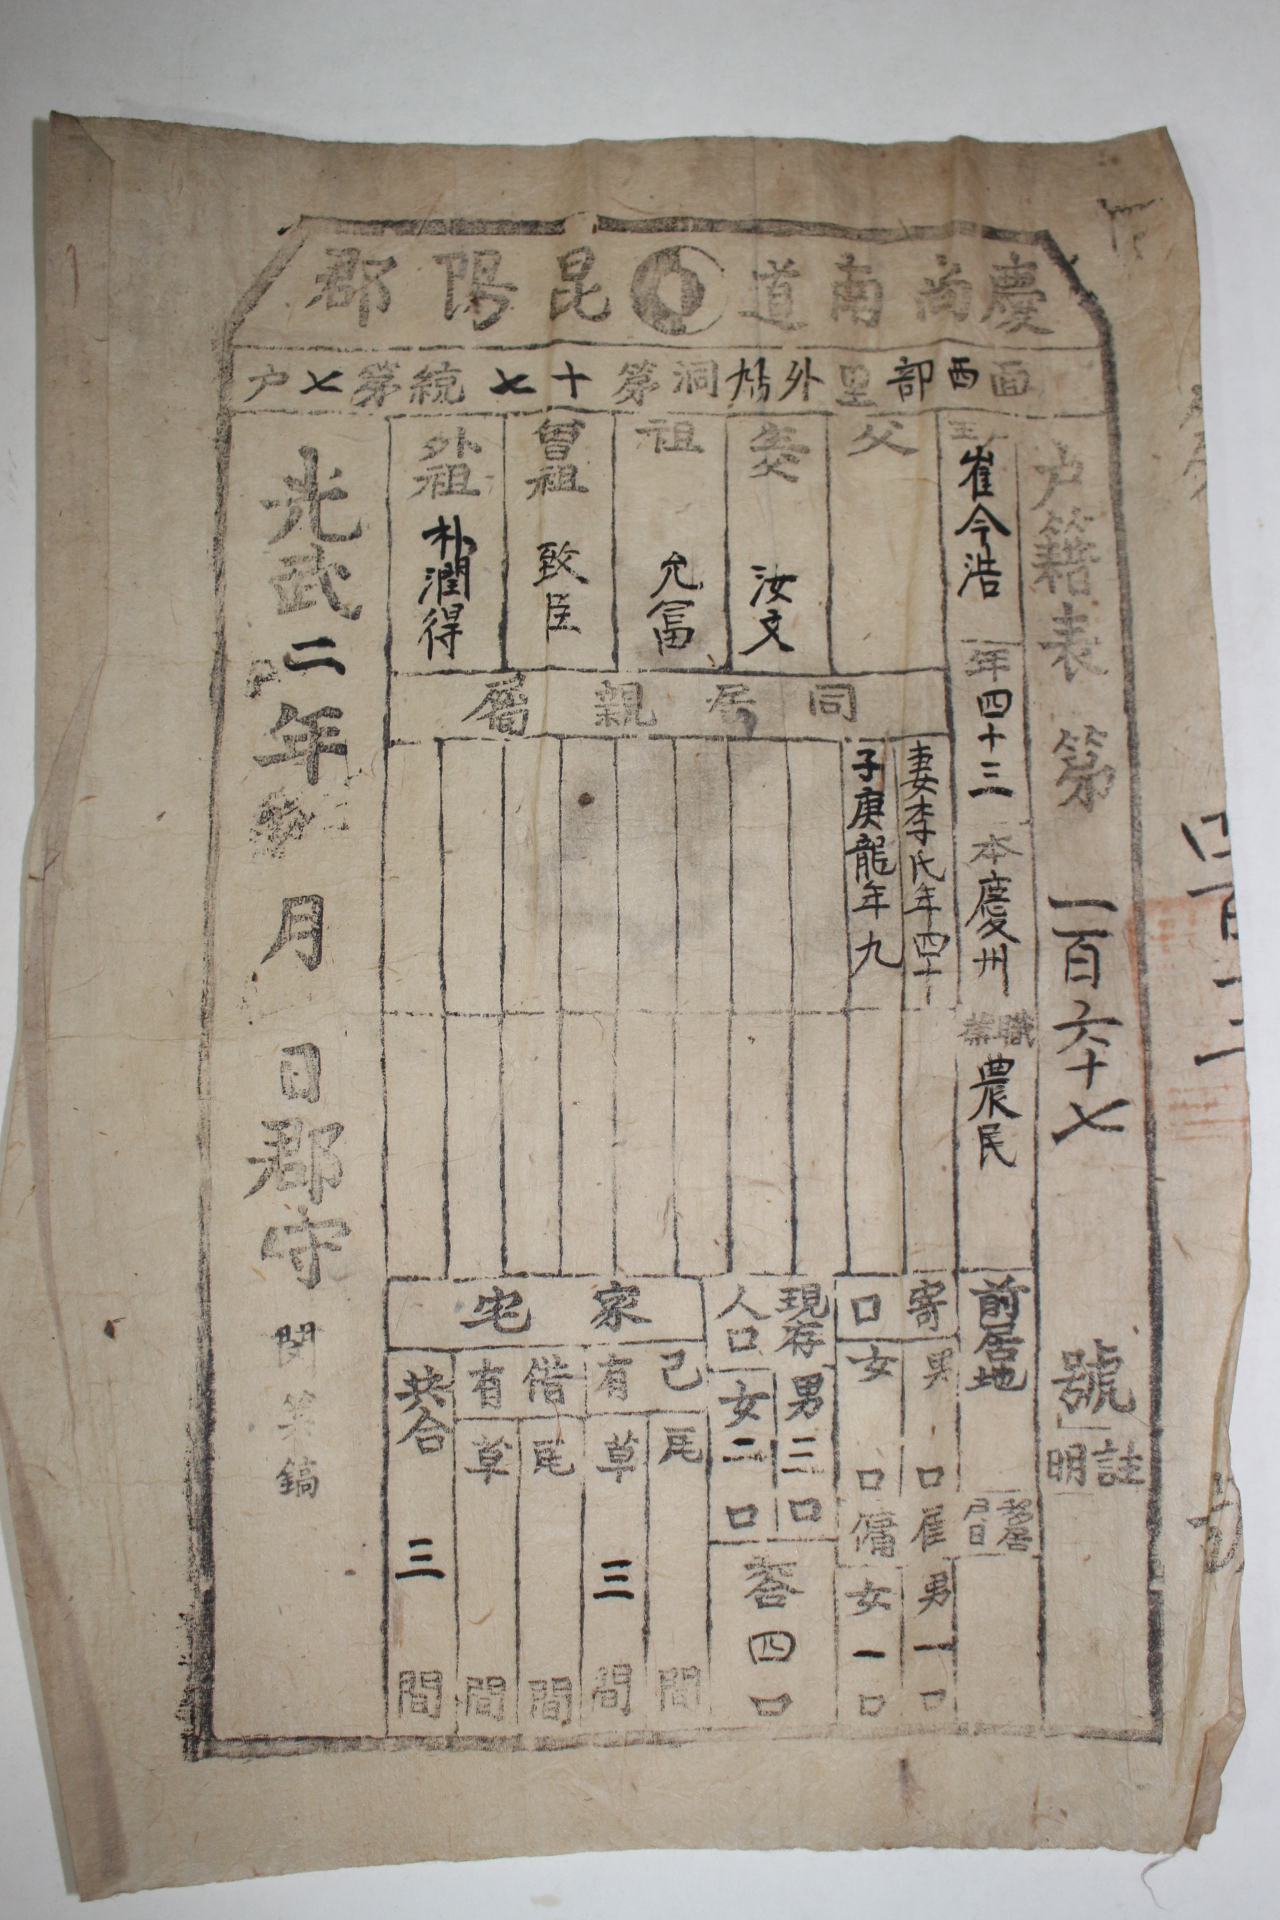 慶尙南道 昆陽郡
面西部里外鳩洞第十七統第七戶
戶籍表 第 一百六十七 號
註明
主 崔今浩 年四十三 本慶州 職業 農民
前居地
移居月日
父
生父 汝文
祖 允富
曾祖 致臣
外祖 朴潤得
同居親屬
妻李氏年四十
子庚龍年九
寄口
男 口
女 口
雇傭
男一口
女一口
現存人口
男三口
女二口
共合四口
家宅
己有
瓦 間
草 三 間
借有
瓦 間
草 間
共合 三 間
光武二年 月 日郡守